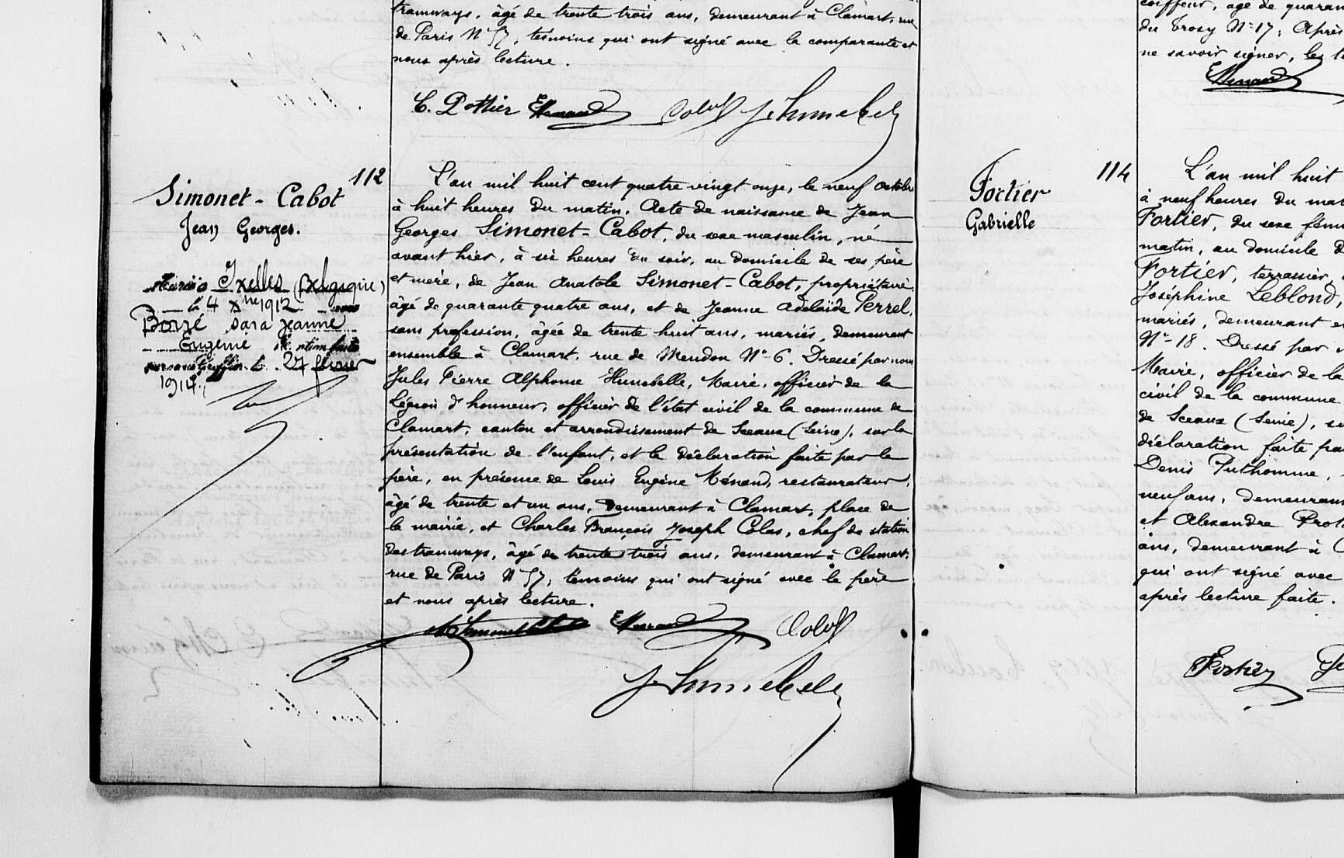 tramways, âgé de trente trois ans, demeurant à Clamart, rue
de Paris N° 57, témoins qui ont signé avec la comparante et
nous après lecture.
C. Pottier
112
Simonet-Cabot
Jean Georges.
L'an mil huit cent quatre vingt onze, le neuf octobre
à huit heures du matin. Acte de naissance de Jean
Georges Simonet-Cabot, du sexe masculin, né
avant hier, à six heures du soir, au domicile de ses père
et mère, de Jean Anatole Simonet-Cabot, propriétaire,
âgé de quarante quatre ans, et de Jeanne Adelaïde Perrel,
sans profession, âgée de trente huit ans, mariés, demeurant
ensemble à Clamart, rue de Meudon N° 6. Dressé par nous
Jules Pierre Alphonse Hunebelle, Maire, officier de la
Légion d'honneur, officier de l'état civil de la commune de
Clamart, canton et arrondissement de Sceaux (Seine), sur la
présentation de l'enfant, et la déclaration faite par le
père, en présence de Louis Eugène Ménand, restaurateur,
âgé de trente et un ans, demeurant à Clamart, place de
la mairie, et Charles François Joseph Colas, chef de station
des tramways, âgé de trente trois ans, demeurant à Clamart,
rue de Paris N° 57, témoins qui ont signé avec le père
et nous après lecture.
Marié à Ixelles (Belgique)
le 4 Xbre 1912
Sara Jeanne
Eugénie
27 février
1914
J. Hunebelle
coiffeur, âgé de quaran
du Trosy N° 17; Après
ne savoir signer, les
114
Fortier
Gabrielle
L'an mil huit
à neuf heures du mat
Fortier, du sexe fémi
matin, au domicile d
Fortier, terrassier,
Joséphine Leblond,
mariés, demeurant e
N° 18. Dressé par
Maire, officier de la
civil de la commune
de Sceaux (Seine), su
déclaration faite pa
Denis Puthomme,
neuf ans, demeurant
et Alexandre Prot
ans, demeurant à C
qui ont signé avec
après lecture faite.
Fortier